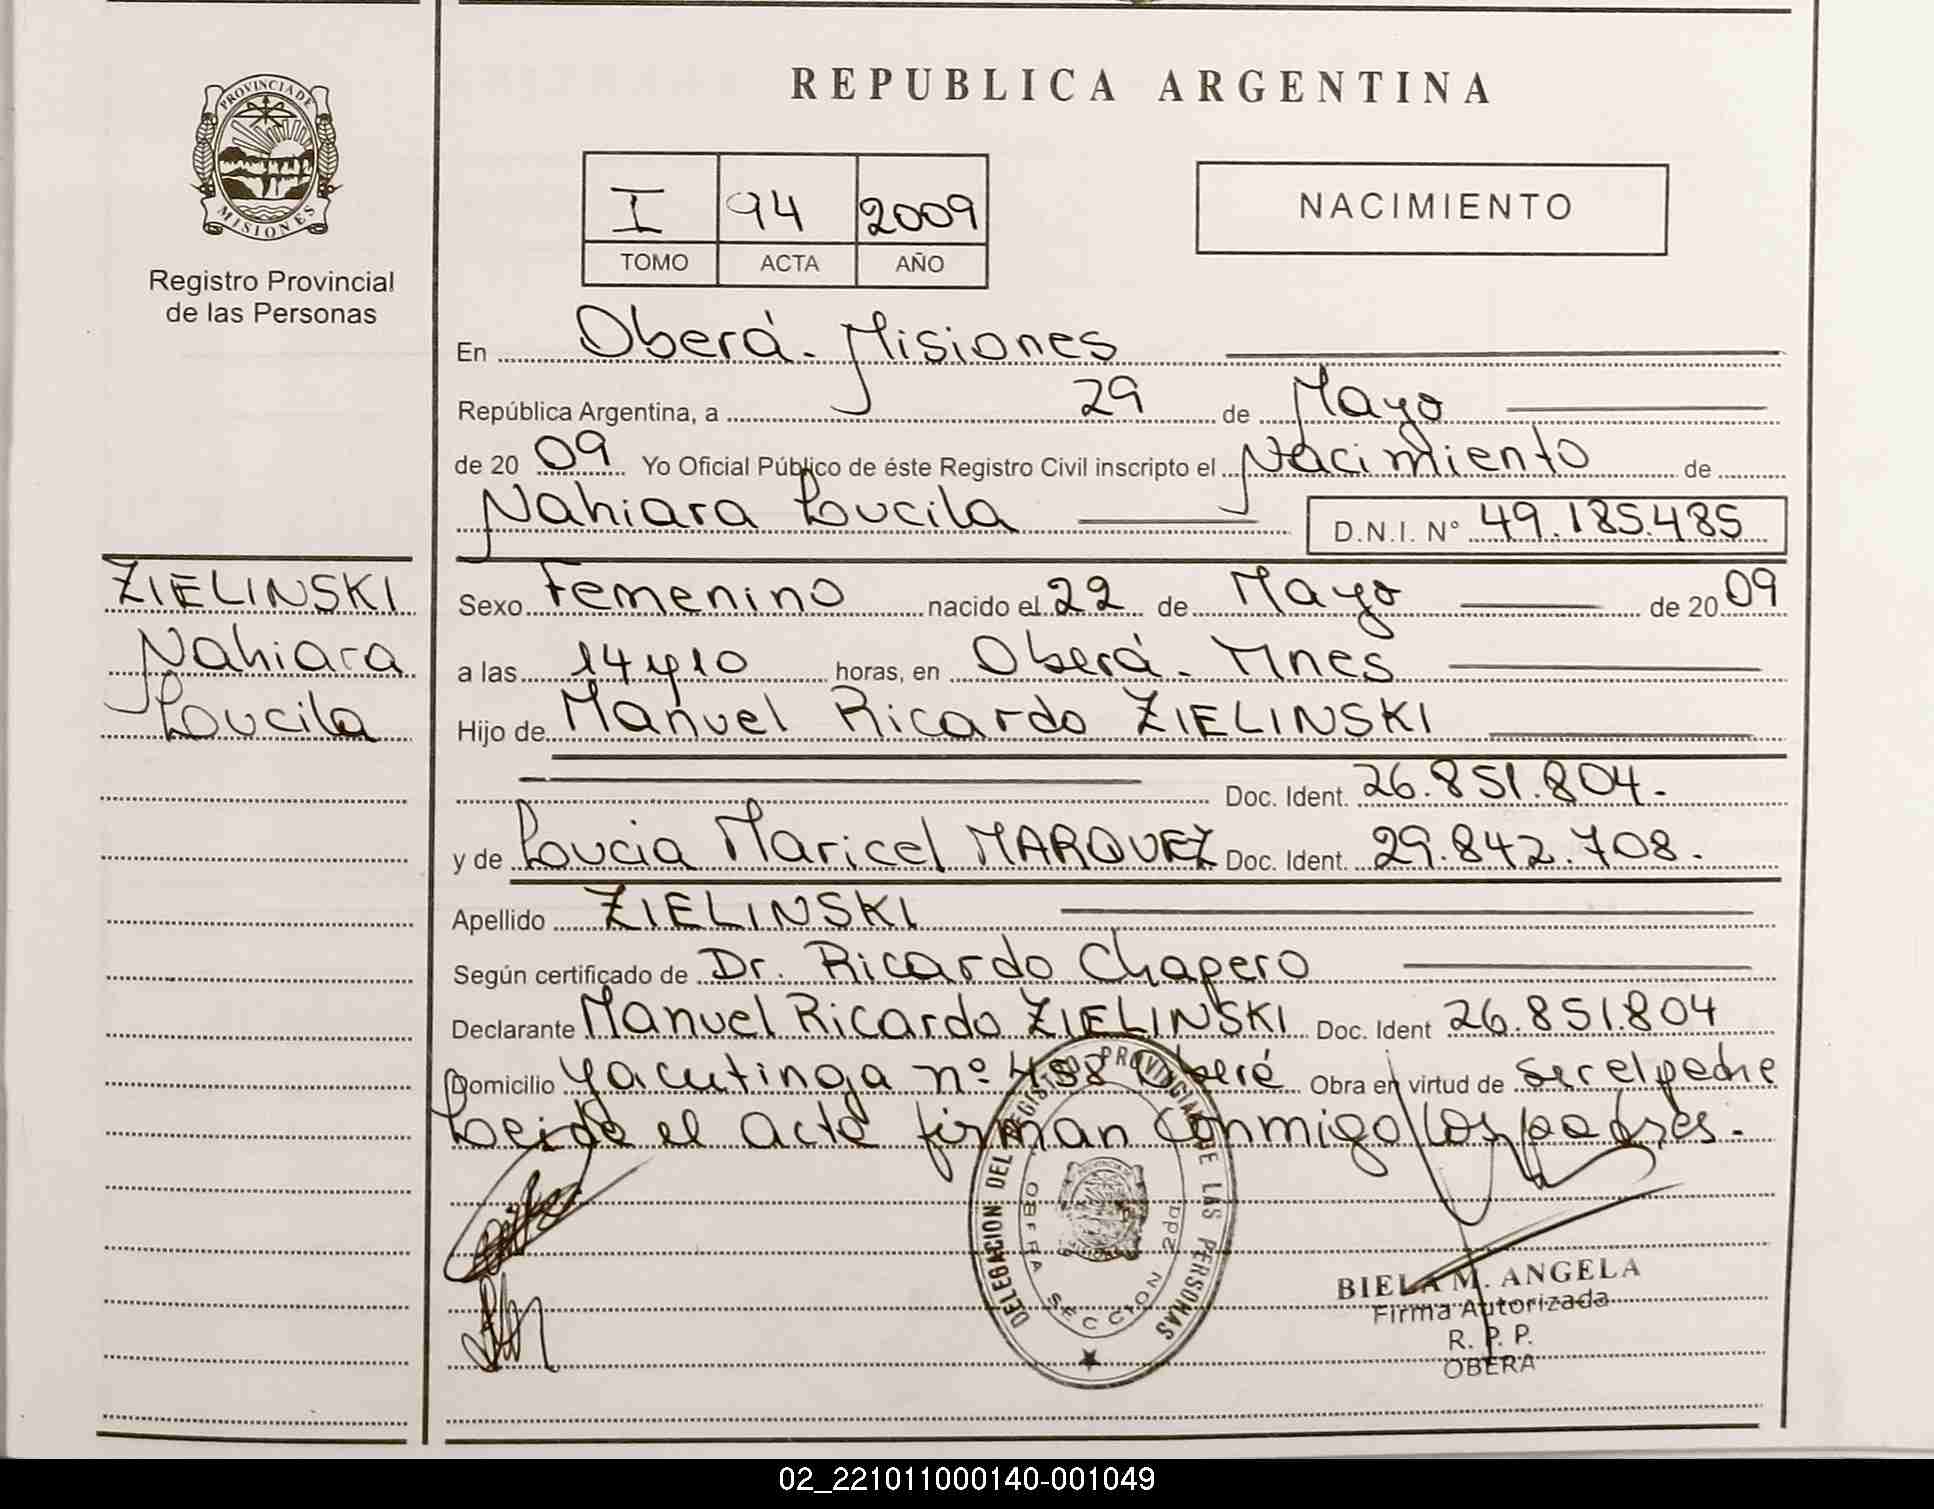 REPUBLICA ARGENTINA
PROVINCIA DE
MISIONES
Registro Provincial
de las Personas
I 94 2009
TOMO ACTA AÑO
NACIMIENTO
En Oberá - Misiones
República Argentina, a 29 de Mayo
de 2009 Yo Oficial Público de éste Registro Civil inscripto el Nacimiento de
Nahiara Loucila D.N.I. N° 49.185.485
ZIELINSKI
Nahiara
Loucila
Sexo Femenino nacido el 22 de Mayo de 2009
a las 14 y 10 horas, en Oberá - Mnes
Hijo de Manuel Ricardo ZIELINSKI
Doc. Ident. 26.851.804.-
y de Loucia Maricel MARQUEZ Doc. Ident. 29.842.708.-
Apellido ZIELINSKI
Según certificado de Dr. Ricardo Chapero
Declarante Manuel Ricardo ZIELINSKI Doc. Ident 26.851.804
Domicilio Yacutinga nº 498 Oberá Obra en virtud de ser el padre
Leida el acta firman conmigo los padres.-
DELEGACION DEL REGISTRO PROVINCIAL DE LAS PERSONAS
OBERA SECCION 2da
BIELA M. ANGELA
Firma Autorizada
R. P. P.
OBERA
02_221011000140-001049